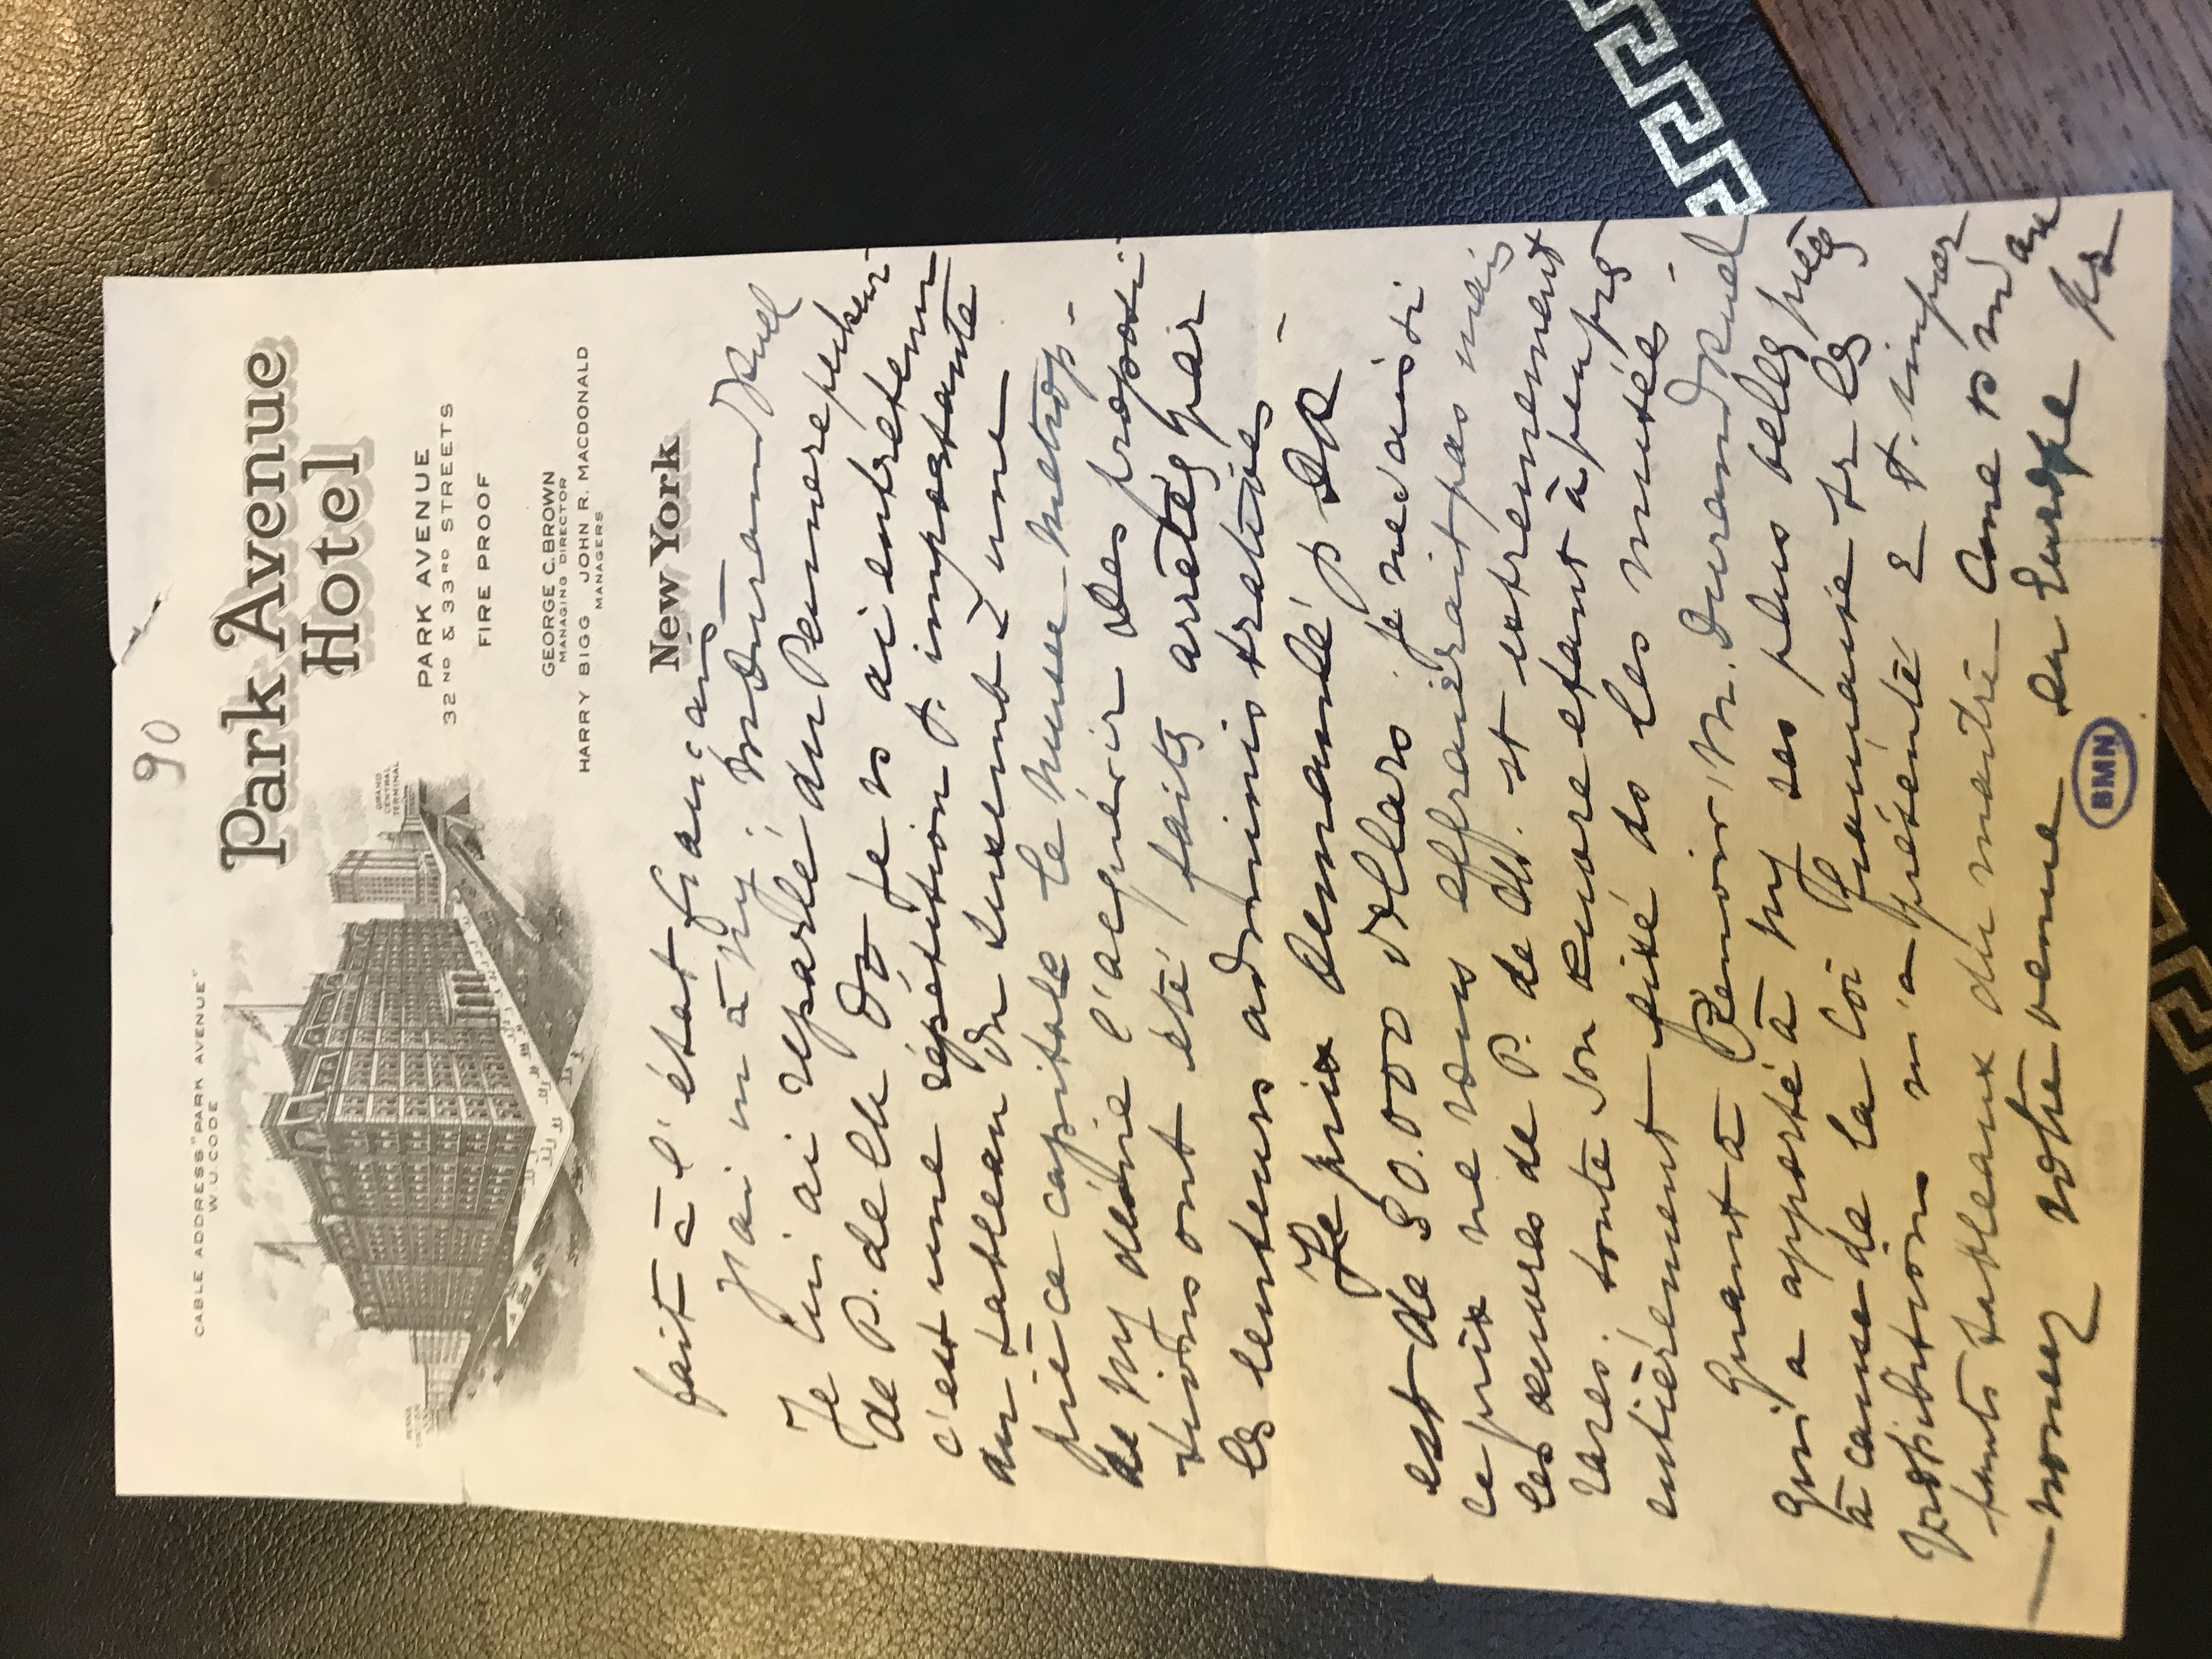 90
CABLE ADDRESS "PARK AVENUE"
W.U. CODE
GRAND
CENTRAL
TERMINAL
Park Avenue
Hotel
PARK AVENUE
32ND & 33RD STREETS
FIRE PROOF
GEORGE C. BROWN
MANAGING DIRECTOR
HARRY BIGG JOHN R. MACDONALD
MANAGERS
New York
fait à l'état français
J'ai vu à NY; M Durand Ruel
Je lui ai reparlé du Pauvre pêcheur
de P. de Ch Dt je vs ai entretenu
c'est une répétition t. importante
du tableau du Luxemb & une
pièce capitale le musée métrop-
de NY désire l'acquérir des proposi-
tions ont été faites arretées par
les lenteurs administratives -
Le prix demandé p DR
est de 50.000 dollars je ne sais si
ce prix ne vous effraierait pas mais
les œuvres de P. de Ch. st extrêmement
rares. toute son œuvre étant à peu près
entièrement fixé ds les musées -
Quant à Renoir, M. Durand Ruel
qui a apporté à NY ses plus belles pièces
à cause de la loi française sr les
m'a présenté 2 t. impor
tants tableaux du maître Come vs m'an
noncez votre venue en Europe
BMN